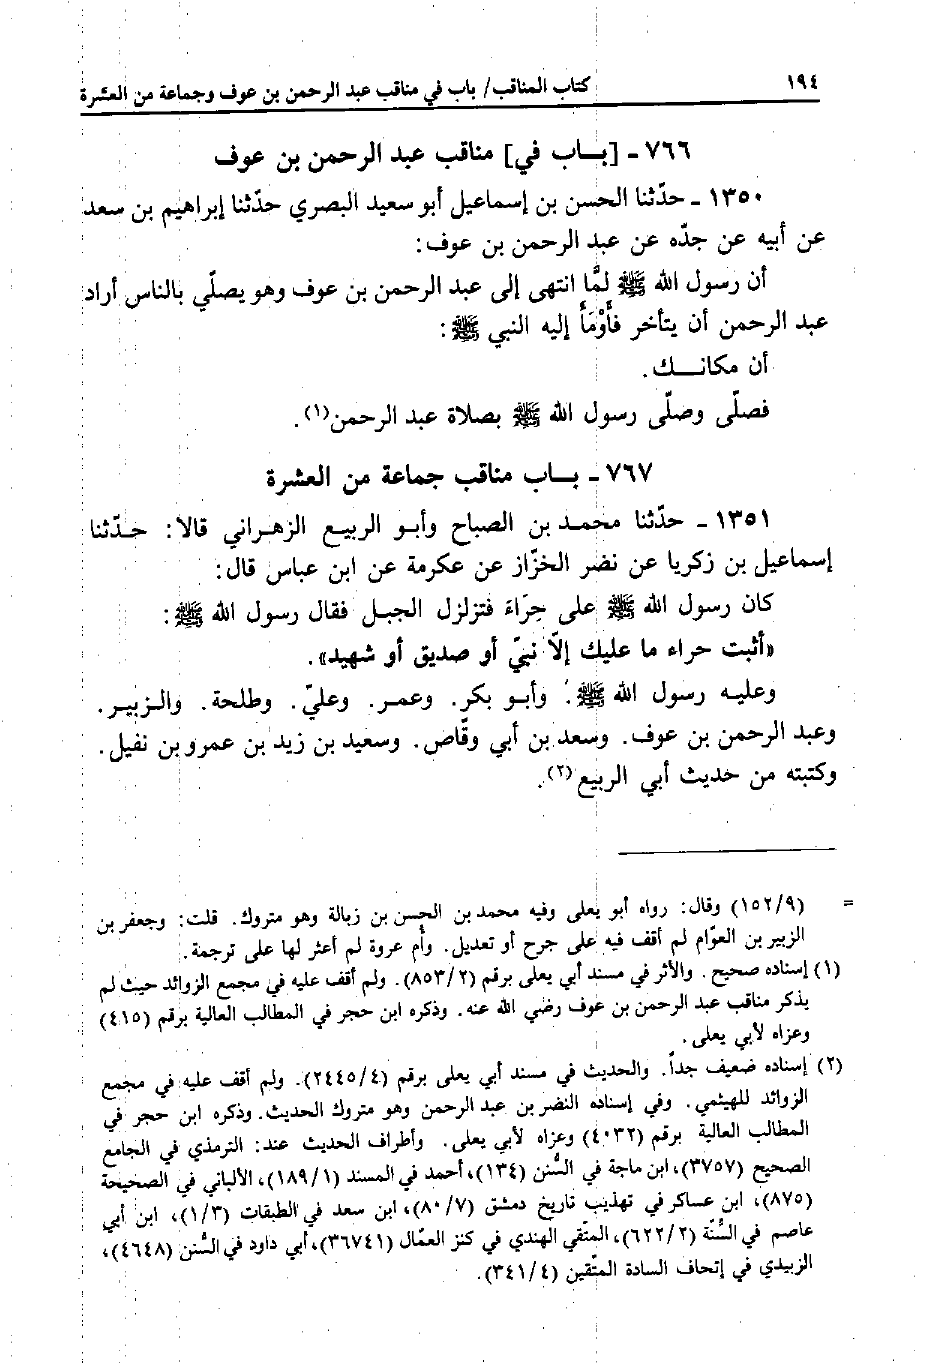 ١٩٤
كتاب المناقب/ باب في مناقب عبد الرحمن بن عوف وجماعة من العشرة
٧٦٦ - [بـاب في] مناقب عبد الرحمن بن عوف
١٣٥٠ - حدّثنا الحسن بن إسماعيل أبو سعيد البصري حدّثنا إبراهيم بن سعد
عن أبيه عن جدّه عن عبد الرحمن بن عوف:
أن رسول الله ﷺ لمَّا انتهى إلى عبد الرحمن بن عوف وهو يصلّي بالناس أراد
عبد الرحمن أن يتأخر فأَوْمَأَ إليه النبي ﷺ:
أن مكانـــك.
فصلّى وصلّى رسول الله ﷺ بصلاة عبد الرحمن(١).
٧٦٧ - بـاب مناقب جماعة من العشرة
١٣٥١ - حدّثنا محمـد بن الصباح وأبـو الربيـع الزهـراني قالا: حـدّثنا
إسماعيل بن زكريا عن نضر الخزّاز عن عكرمة عن ابن عباس قال:
كان رسول الله ﷺ على حِرَاءَ فتزلزل الجبـل فقال رسول الله ﷺ:
«أثبت حراء ما عليك إلاّ نبيّ أو صديق أو شهيد».
وعليـه رسول الله ﷺ. وأبـو بكر. وعمـر. وعليّ. وطلحة. والـزبيـر.
وعبد الرحمن بن عوف. وسعد بن أبي وقّاص. وسعيد بن زيد بن عمرو بن نفيل.
وكتبته من حديث أبي الربيع(٢).
= (١٥٢/٩) وقال: رواه أبو يعلى وفيه محمد بن الحسن بن زبالة وهو متروك. قلت: وجعفر بن
الزبير بن العوّام لم أقف فيه على جرح أو تعديل. وأم عروة لم أعثر لها على ترجمة.
(١) إسناده صحيح. والأثر في مسند أبي يعلى برقم (٨٥٣/٢). ولم أقف عليه في مجمع الزوائد حيث لم
يذكر مناقب عبد الرحمن بن عوف رضي الله عنه. وذكره ابن حجر في المطالب العالية برقم (٤١٥)
وعزاه لأبي يعلى.
(٢) إسناده ضعيف جداً. والحديث في مسند أبي يعلى برقم (٢٤٤٥/٤). ولم أقف عليه في مجمع
الزوائد للهيثمي. وفي إسناده النضر بن عبد الرحمن وهو متروك الحديث. وذكره ابن حجر في
المطالب العالية برقم (٤٠٣٢) وعزاه لأبي يعلى. وأطراف الحديث عند: الترمذي في الجامع
الصحيح (٣٧٥٧)، ابن ماجة في السُّنن (١٣٤)، أحمد في المسند (١٨٩/١)، الألباني في الصحيحة
(٨٧٥)، ابن عساكر في تهذيب تاريخ دمشق (٨٠/٧)، ابن سعد في الطبقات (١/٣)، ابن أبي
عاصم في السُّنّة (٦٢٢/٢)، المتّقي الهندي في كنز العمّال (٣٦٧٤١)، أبي داود في السُّنن (٤٦٤٨)،
الزبيدي في إتحاف السادة المتّقين (٣٤١/٤).